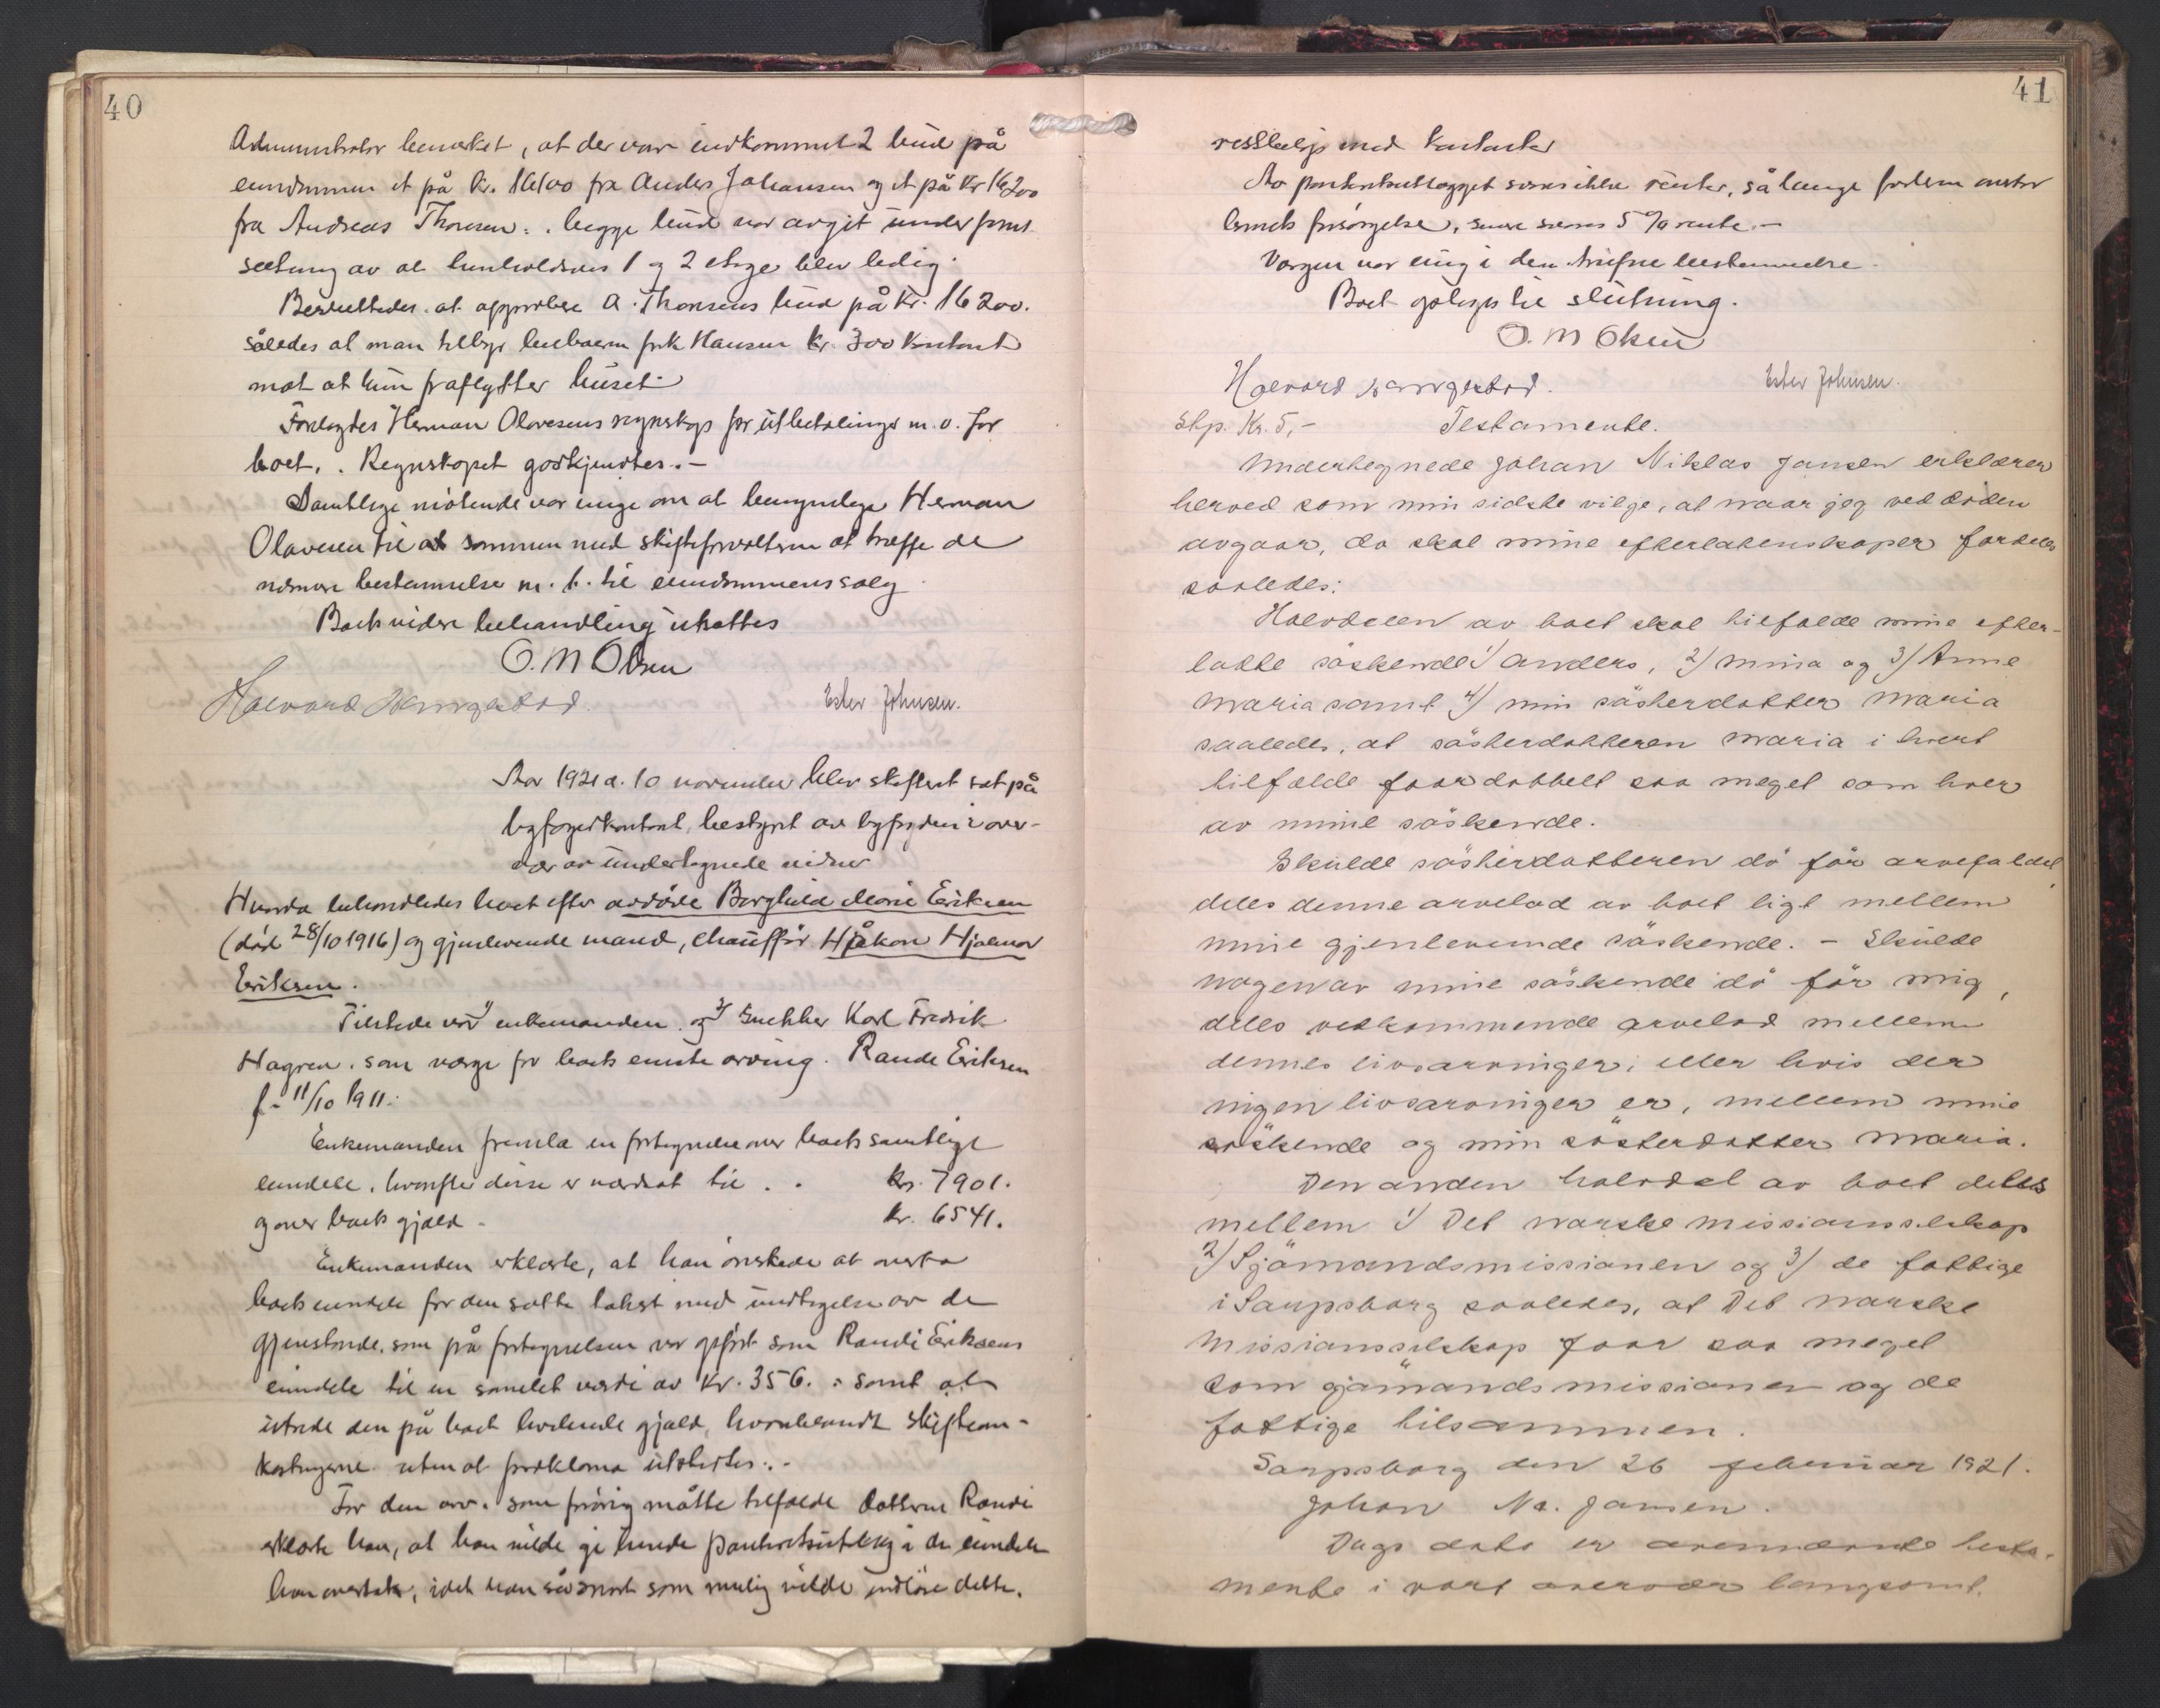 40
Administrator bemerket, at der var indkommet 2 bud på
eiendommen et på kr. 16100 fra Anders Johansen og et på kr 16200
fra Andreas Thoresen. begge bud var avgit under forut
sætning av at husholdsus 1 og 2 etage blev ledig.
Besluttedes at approbere A. Thoresens bud på kr. 16200.
således at man tilbyr leieboeren frk Hansen kr. 300 kontant
mot at hun fraflytter huset.
Forelagdes Herman Olavesens regnskap for utbetalinger m. v. for
boet. Regnskapet godkjendtes.-
Samtlige møtende var enige om at bemyndige Herman
Olavesen til at sammen med skifteforvalteren at træffe de
nærmere bestemmelse m. h. til eiendommens salg.
Boets videre behandling utsattes
O. M Olsen
Halvard Ester Johnsen.
Aar 1921 d. 10 november blev skifteret sat på
byfogedkontoret, bestyret av byfogden i over-
vær av undertegnede vidner
Hvorda behandledes boet efter avdøde Borghild Marie Eriksen
(død 28/10 1916) og gjenlevende mand, chauffør Håkon Hjalmar
Eriksen.
Tilstede var 1) enkemanden og 2) Snekker Karl Fredrik
Hagren. som verge for boets eneste arving. Rande Eriksen
f. 11/10 1911.
Enkemanden fremla en fortegnelse over boets samtlige
eiendele. hvorefter disse er værdsat til . . kr. 7901.
og over boets gjæld - kr. 6541.
Enkemanden erklærte, at han ønskede at overta
boets eiendele for den satte takst med undtagelse av de
gjenstande, som på fortegnelsen var opført som Randi Eriksens
eiendele til en samlet værdi av kr. 356. samt at
utrede den på boet hvilende gjæld, hvoriblandt skifteom-
kostningerne uten at proklama utstedtes.-
For den arv. som forøvrig måtte tilfalde datteren Randi
erklærte han, at han vilde gi hende panteretsutlæg i de eiendele
han overtok, idet han så snart som mulig vilde indløse dette.
41
resskelig med kontanter
Av panteretsutlægget svares ikke renter, så længe faderen overtar
barnets forsørgelse, senere svares 5 % rente.-
Vergen var enig i den trufne bestemmelse.
Boet optages til slutning.
O. M Olsen
Halvard Ester Johnsen.
Stp. Kr. 5,- Testamente.
Undertegnede Johan Niklas Jansen erklærer
herved som min sidste vilje, at naar jeg ved døden
avgaar, da skal mine efterlatenskaper fordeles
saaledes:
Halvdelen av boet skal tilfalde mine efter-
latte søskende 1/ Anders, 2/ Mina og 3/ Anne
Maria samt 4/ min søsterdatter Maria
saaledes, at søsterdatteren Maria i hvert
tilfælde faar dobbelt saa meget som hver
av mine søskende.
Skulde søsterdatteren dö för arvefaldet,
deles denne arvelod av boet ligt mellem
mine gjenlevende söskende. - Skulde
nogen av mine söskende dö för mig,
deles vedkommende arvelod mellem
dennes livsarvinger, eller hvis der
ingen livsarvinger er, mellem mine
söskende og min søsterdatter Maria.
Den anden halvdel av boet deles
mellem 1/ Det norske missionsselskap
2/ Sjömandsmissionen og 3/ de fattige
i Sarpsborg saaledes, at Det norske
Missionsselskap faar saa meget
som sjömandsmissionen og de
fattige tilsammen.
Sarpsborg den 26 februar 1921.
Johan Na. Jansen.
Dags dato er ovennævnte testa-
mente i vort overvær